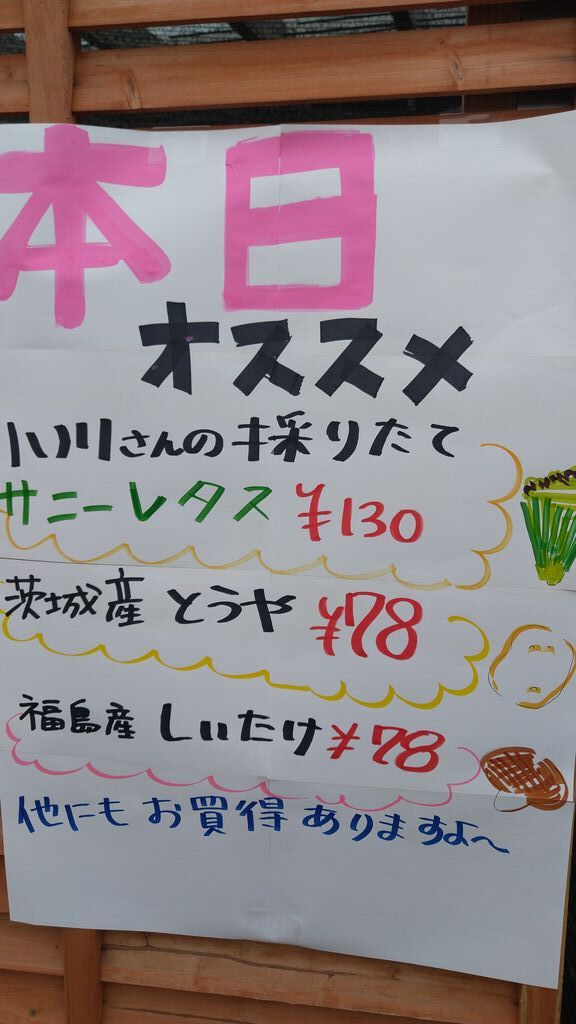 本日
オススメ
小川さんの採りたて
サニーレタス ¥130
茨城産 とうや ¥78
福島産 しいたけ ¥78
他にもお買得ありますよ〜